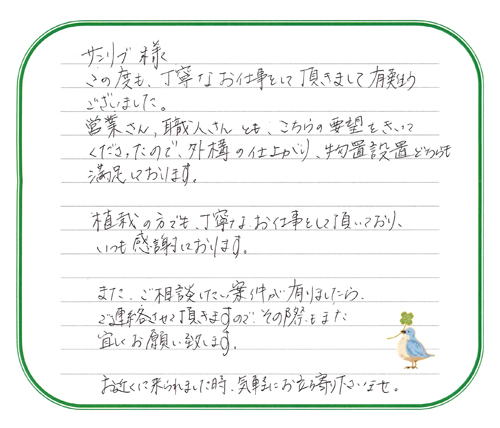 サンリブ 様
この度も、丁寧なお仕事をして頂きまして有難う
ございました。
営業さん、職人さんとも、こちらの要望をきいて
くださったので、外構の仕上がり、物置設置どちらも
満足しております。
植栽の方でも、丁寧なお仕事をして頂いており、
いつも感謝しております。
また、ご相談したい案件が有りましたら、
ご連絡させて頂きますので、その際もまた
宜しくお願い致します。
お近くに来られました時、気軽にお立ち寄り下さいませ。